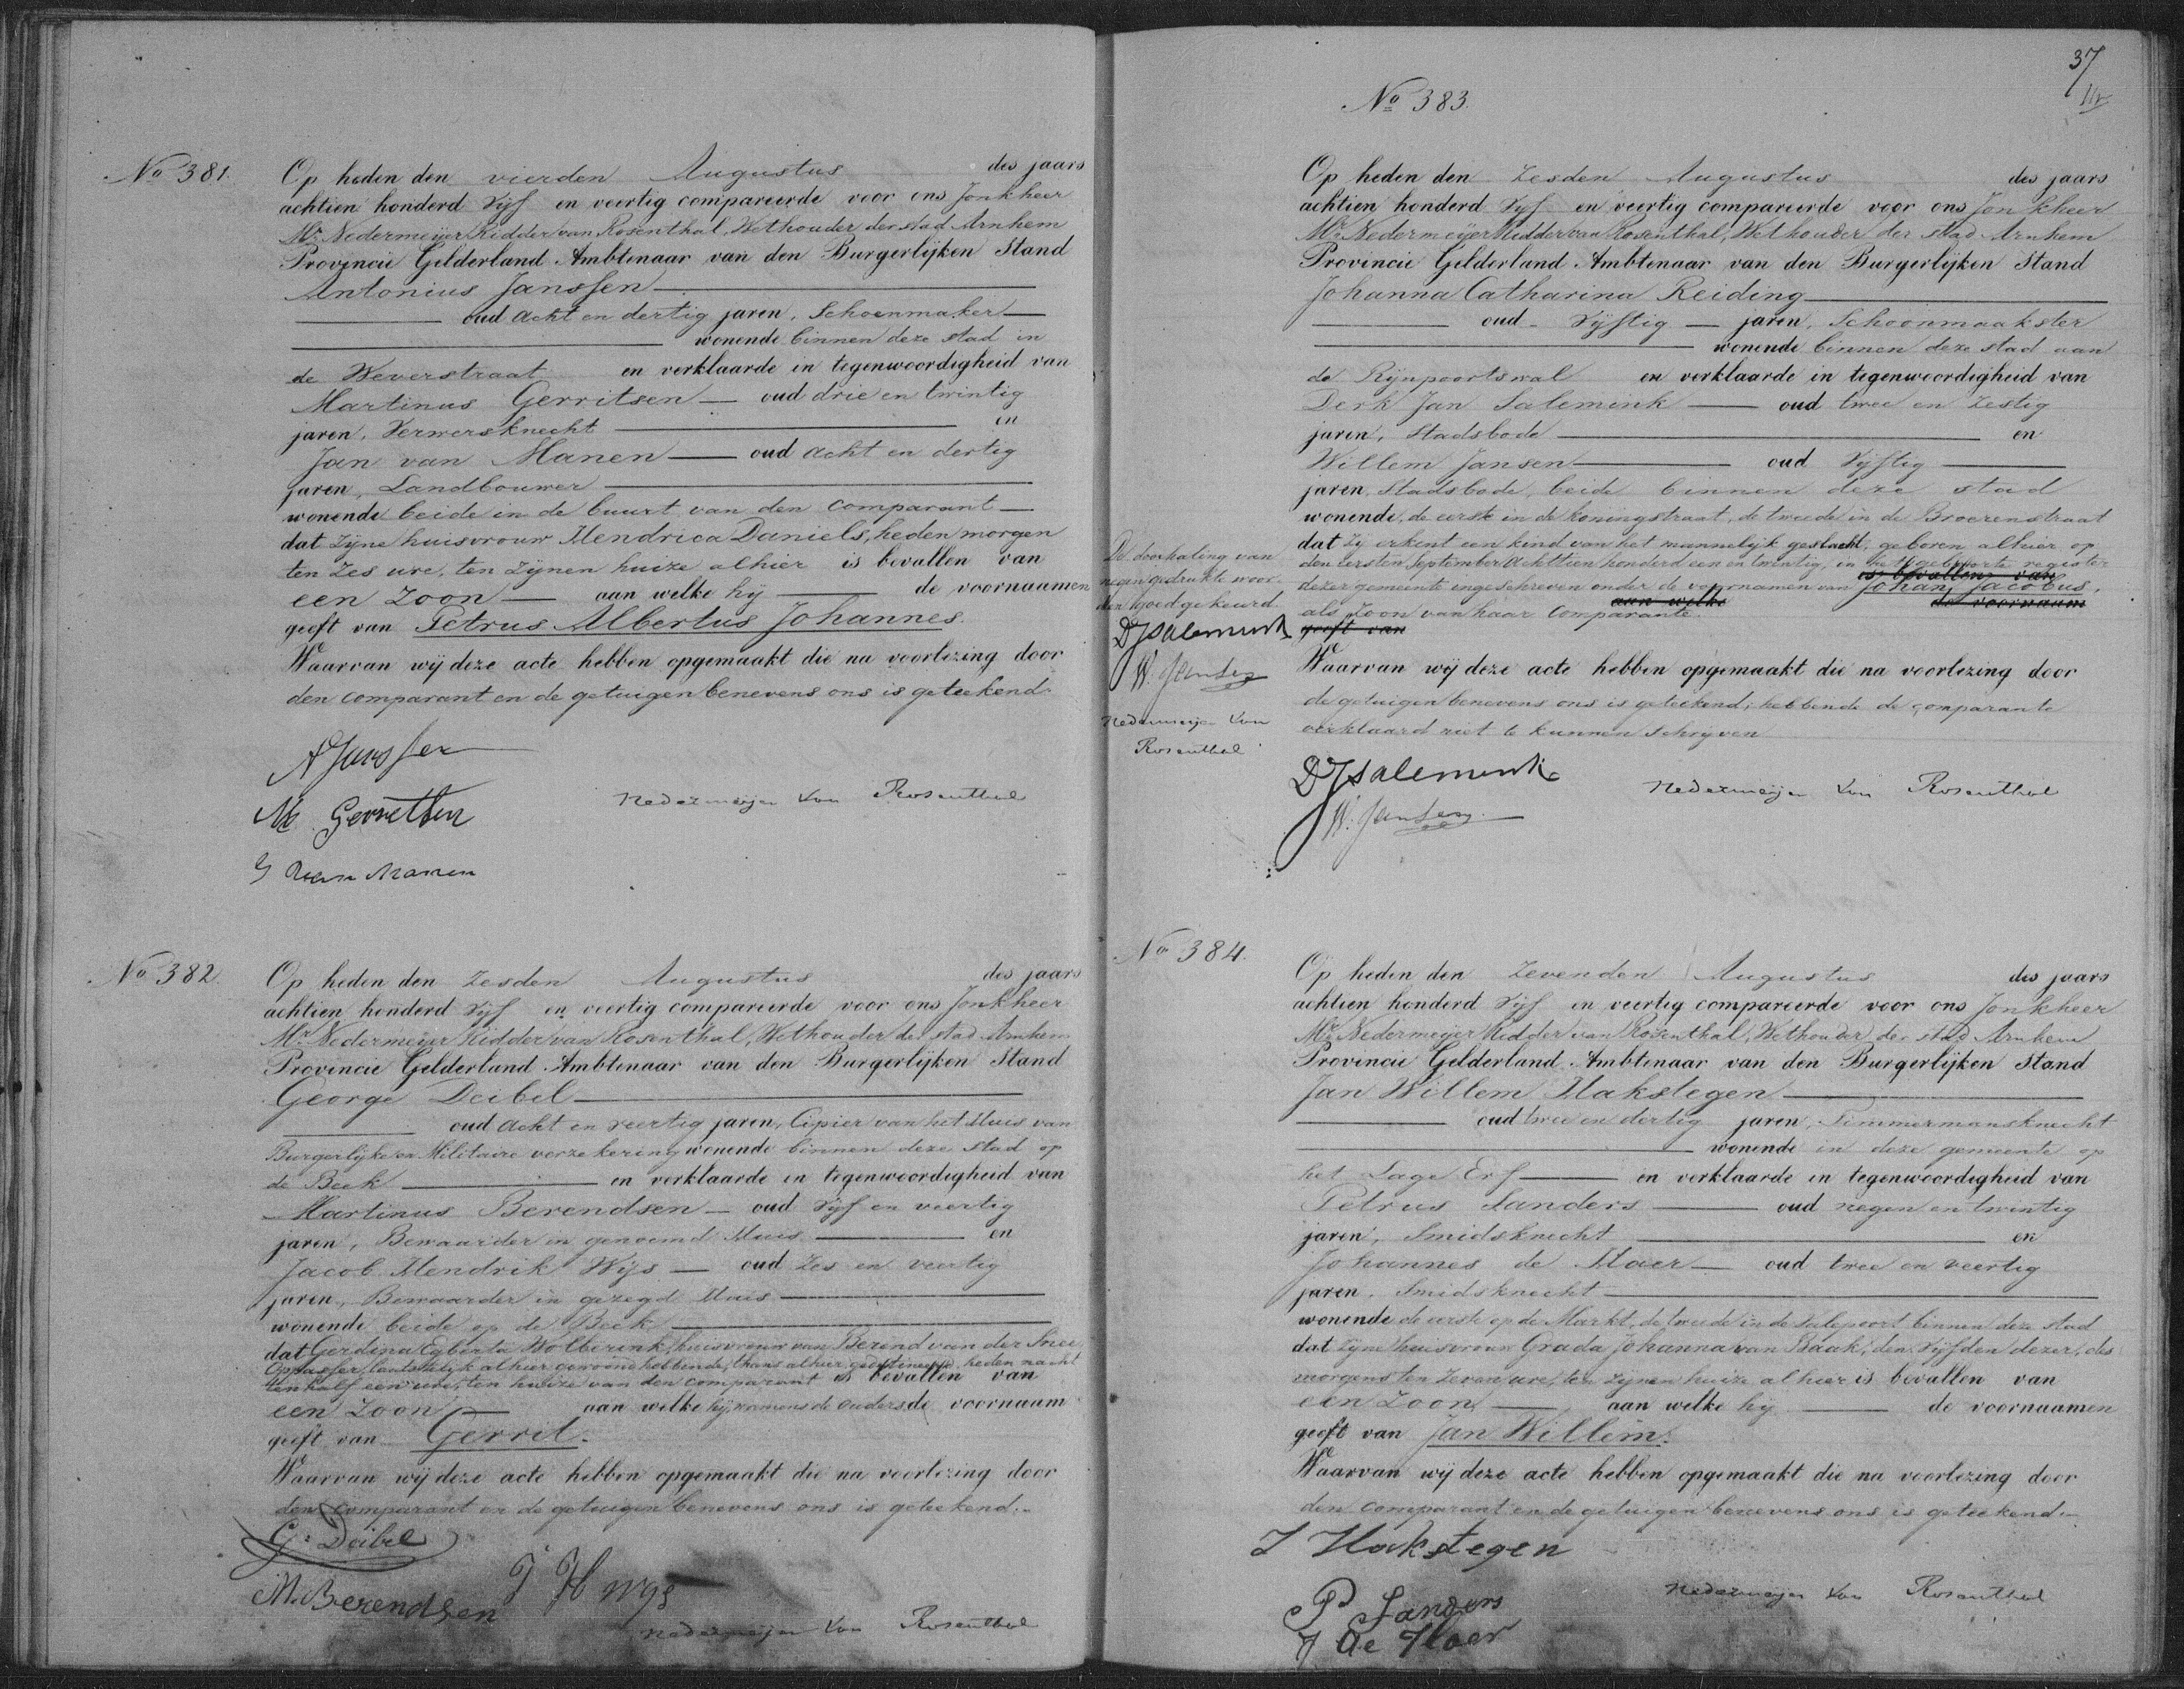 No 381.
Op heden den vierden Augustus des jaars
achtien honderd Vijf en veertig compareerde voor ons Jonkheer
Mr. Nedermeijer Ridder van Rosenthal, Wethouder der stad Arnhem
Provincie Gelderland Ambtenaar van den Burgerlijken Stand
Antonius Janssen
oud acht en dertig jaren, Schoenmaker
wonende binnen deze stad in
de Weverstraat en verklaarde in tegenwoordigheid van
Martinus Gerritsen oud drie en twintig
jaren, Ververs knecht en
Jan van Manen oud acht en dertig
jaren, Landbouwer
wonende beide in de buurt van den comparant
dat zijne huisvrouw Hendrica Daniels, heden morgen
ten zes ure, ten zijnen huize alhier is bevallen van
een zoon aan welke hij de voornaamen
geeft van Petrus Albertus Johannes.
Waarvan wij deze acte hebben opgemaakt die na voorlezing door
den comparant en de getuigen benevens ons is geteekend.
A Janssen
M. Gerritsen
Nedermeijer van Rosenthal
J van Manen
No 382
Op heden den zesden Augustus des jaars
achtien honderd Vijf en veertig compareerde voor ons Jonkheer
Mr. Nedermeijer Ridder van Rosenthal, Wethouder der stad Arnhem
Provincie Gelderland Ambtenaar van den Burgerlijken Stand
George Deibel
oud acht en veertig jaren, Cipier van het Huis van
Burgerlijke en Militaire verzekering wonende binnen deze stad op
de Beek en verklaarde in tegenwoordigheid van
Martinus Berendsen oud Vijf en veertig
jaren, Bewaarder in genoemd Huis en
Jacob Hendrik Wijs oud zes en veertig
jaren, Bewaarder in gezegd Huis
wonende beide op de Beek
dat Gerdina Egberta Wolberink, huisvrouw van Berend van der Snee
Oppasser, laatstelijk alhier gewoond hebbende, thans alhier gedetineerd, heden nacht
ten half een ure, ten huize van den comparant is bevallen van
een zoon aan welke hij namens de ouders de voornaam
geeft van Gerrit.
Waarvan wij deze acte hebben opgemaakt die na voorlezing door
den comparant en de getuigen benevens ons is geteekend.
G. Deibel
J H Wys
M. Berendsen
Nedermeijer van Rosenthal
37
No 383.
Op heden den zesden Augustus des jaars
achtien honderd Vijf en veertig compareerde voor ons Jonkheer
Mr. Nedermeijer Ridder van Rosenthal, Wethouder der stad Arnhem
Provincie Gelderland Ambtenaar van den Burgerlijken Stand
Johanna Catharina Reiding
oud Vijftig jaren, Schoonmaakster
wonende binnen deze stad aan
de Rijnpoortswal en verklaarde in tegenwoordigheid van
Derk Jan Salemink oud twee en zestig
jaren, Stadsbode en
Willem Jansen oud Vijftig
jaren, Stadsbode, beide binnen deze stad
wonende, de eerste in de Koningstraat, de tweede in de Broerenstraat
dat zij erkent een kind van het mannelijk geslacht, geboren alhier op
den eersten September achttien honderd een en twintig, in het geboorte register
is bevallen van
dezer gemeente ingeschreven onder de voornamen van Johan Jacobus,
aan welke de voornaam
als zoon van haar Comparante.
geeft van
Waarvan wij deze acte hebben opgemaakt die na voorlezing door
de getuigen benevens ons is geteekend; hebbende de comparante
verklaard niet te kunnen schrijven
De doorhaling van
negen gedrukte woor-
den goedgekeurd
DJ Salemink
W. Jansen
Nedermeijer van
Rosenthal
DJ Salemink
W. Jansen
Nedermeijer van Rosenthal
No 384.
Op heden den zevenden Augustus des jaars
achtien honderd Vijf en veertig compareerde voor ons Jonkheer
Mr. Nedermeijer Ridder van Rosenthal, Wethouder der stad Arnhem
Provincie Gelderland Ambtenaar van den Burgerlijken Stand
Jan Willem Hakstegen
oud twee en dertig jaren, Timmermansknecht
wonende in deze gemeente op
het Lage Erf en verklaarde in tegenwoordigheid van
Petrus Sanders oud negen en twintig
jaren, Smidsknecht en
Johannes de Haer oud twee en veertig
jaren, Smidsknecht
wonende de eerste op de Markt, de tweede in de Salepoort binnen deze stad
dat zijne huisvrouw Grada Johanna van Baak, den Vijfden dezer, des
morgens ten zeven ure, ten zijnen huize alhier is bevallen van
een zoon, aan welke hij de voornaamen
geeft van Jan Willem.
Waarvan wij deze acte hebben opgemaakt die na voorlezing door
den comparant en de getuigen benevens ons is geteekend.
J Hakstegen
P Sanders
J de Haer
Nedermeijer van Rosenthal